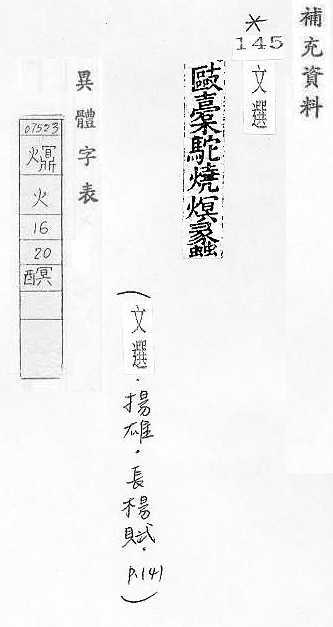 補充資料
*
145
文選
敺橐駝燒熐蠡
(文選.揚雄.長楊賦.P.141)
異體字表
07553
火
16
20